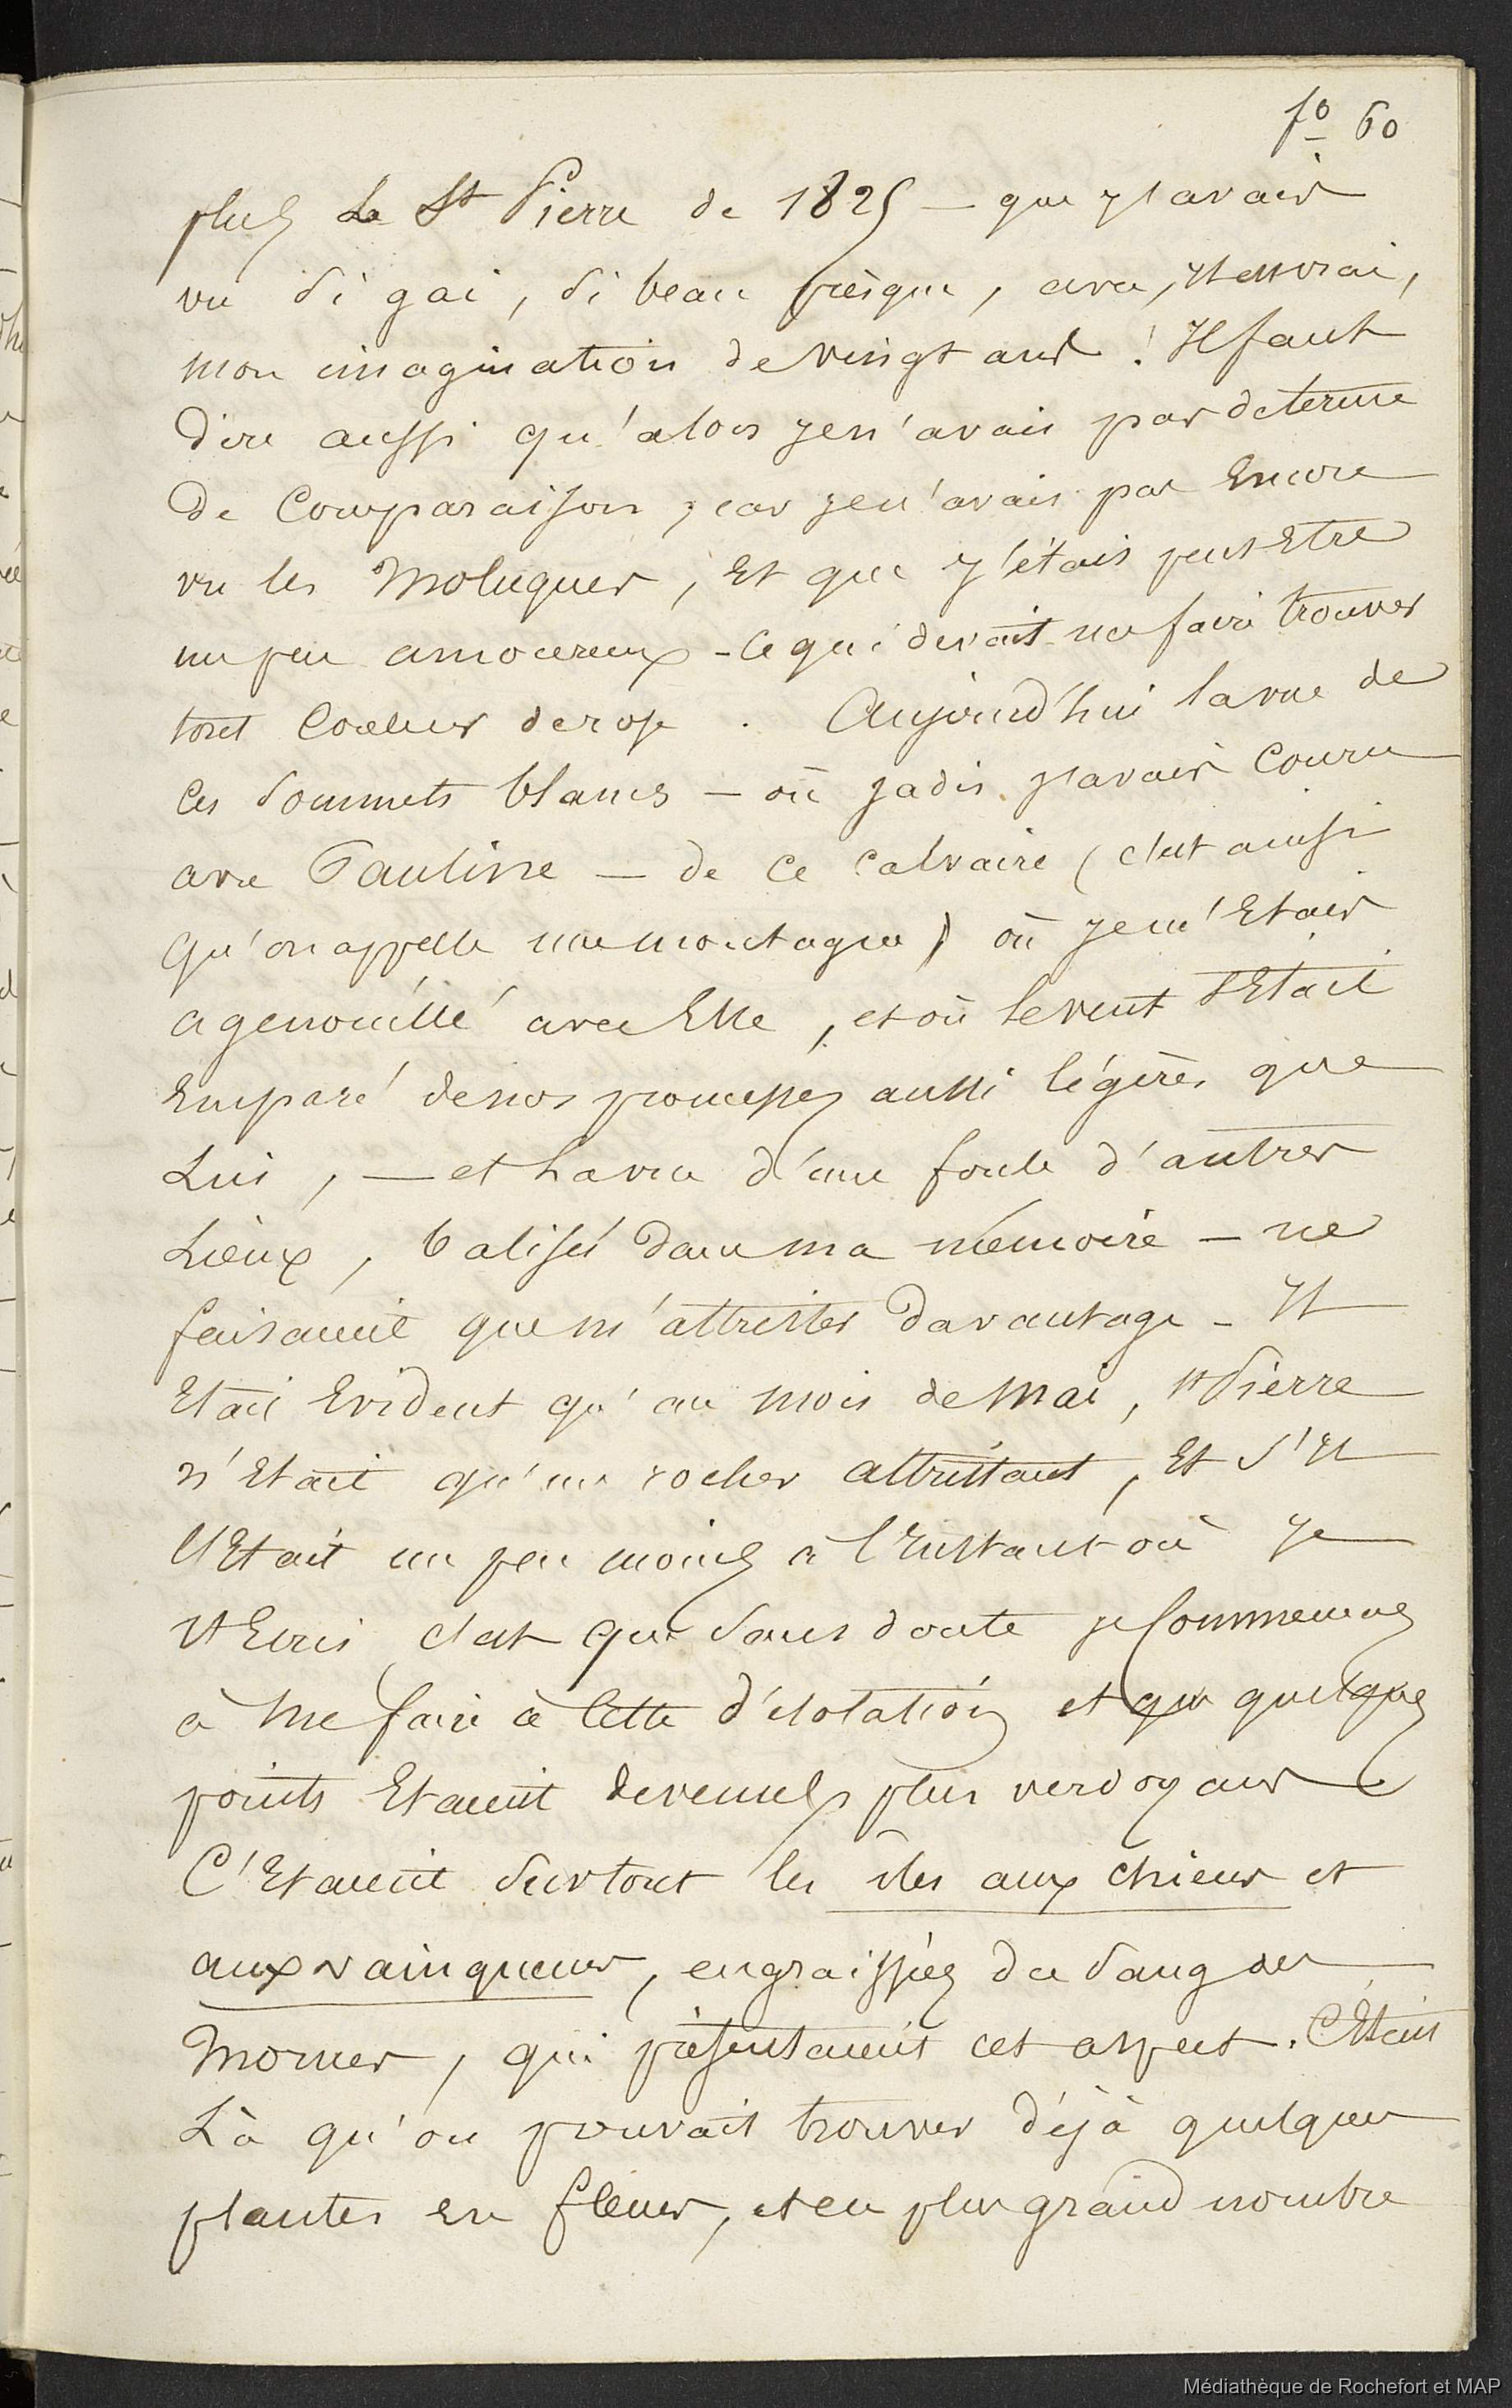 fo 60
plus Le St Pierre de 1825 — que j'avais
vu si gai, si beau presque, avec, il est vrai,
mon imagination de vingt ans ! Il faut
dire aussi qu'alors je n'avais pas de terme
de Comparaison, car je n'avais pas Encore
vu les Moluques, Et que j'étais peut Etre
un peu amoureux - Ce qui devait me faire trouver
tout Couleur de rose. Aujourd'hui la vue de
Ces Sommets blancs — où jadis j'avais Couru
avec Pauline — de Ce Calvaire (c'est ainsi
qu'on appelle une montagne) où je m'Etais
agenouillé avec Elle, et où le vent s'Etait
Emparé de nos promesses aussi légères que
Lui, — et la vue d'une foule d'autres
Lieux, balisés dans ma mémoire — ne
faisaient que m'attrister davantage - Il
Etait Evident qu'au mois de Mai, St Pierre
n'Etait qu'un rocher attristant, Et S'Il
l'Etait un peu moins à l'Instant où je
l'Ecris c'est que Sans doute je Commençais
à me faire à Cette désolation et que quelques
points Etaient devenus plus verdoyans
C'Etaient Surtout les îles aux chiens et
aux vainqueurs, engraissées du Sang des
Morues, qui présentaient cet aspect. C'Etait
Là qu'on pouvait trouver déjà quelques
plantes en fleurs, et en plus grand nombre
Médiathèque de Rochefort et MAP